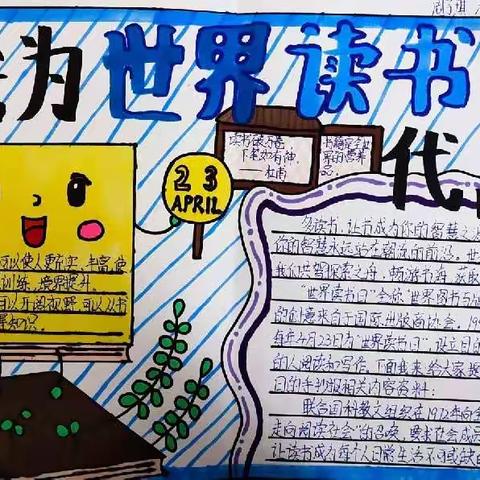 为世界读书
代
23
APRIL
读书破万卷,
下笔如有神。
——杜甫
书籍是全世
界的营养
品。
可以使人更充实,丰富,使
训练,境界提升
可以开阔视野,可以从书
知识。
多读书,让书成为你的智慧之
你的智慧永远站在潮流的前沿。世
我们共驾探索之舟,畅游书海,获取
"世界读书日"全称"世界图书与版
的创意来自于国际出版商协会。19
每年4月23日为"世界读书日",设立目的
的人阅读和写作。下面我来给大家
日的手抄报相关内容资料:
联合国科教文组织在1972年向全
走向阅读社会"的召唤,要求社会成员
让读书成为每个人日常生活不可或缺的